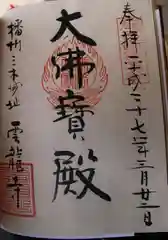 奉拝 平成二十七年三月廿二日
大佛寳殿
播州三木城址
雲龍寺